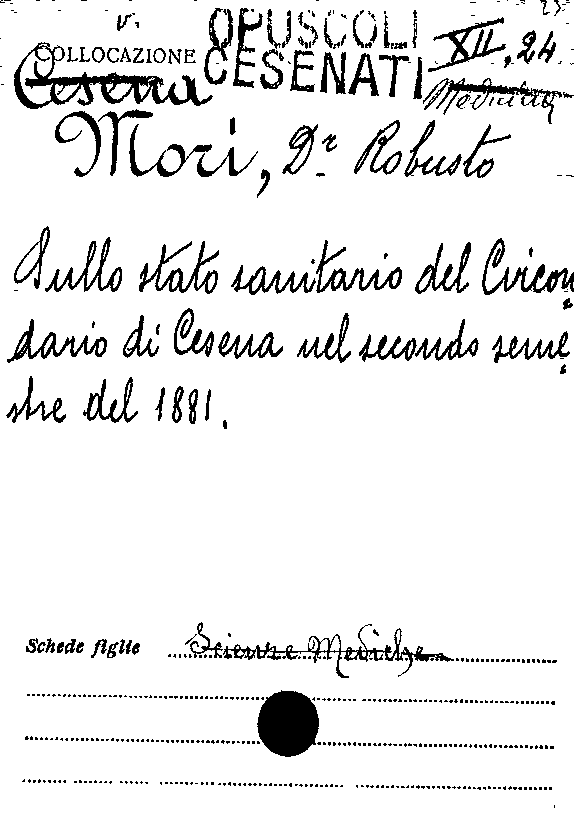 v.
OPUSCOLI
COLLOCAZIONE CESENATI XII, 24
Cesena Medicina
Mori, Dr Robusto
Sullo stato sanitario del Circon
dario di Cesena nel secondo seme
stre del 1881.
Schede figlie Scienze Mediche